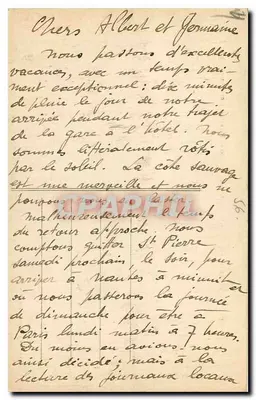 Chers Albert et Germaine
Nous passons d'excellentes
vacances, avec un temps vrai-
ment exceptionnel : dix minutes
de pluie le jour de notre
arrivée pendant notre trajet
de la gare à l'hôtel. Nous
sommes littéralement rôtis
par le soleil. La côte sauvage
est une merveille et nous ne
pouvons
malheureusement le temps
du retour approche. Nous
comptons quitter St Pierre
samedi prochain le soir, pour
arriver à Nantes à minuit et
où nous passerons la journée
de dimanche pour être à
Paris lundi matin à 7 heures.
Du moins en avions-nous
ainsi décidé ; mais à la
lecture des journaux locaux